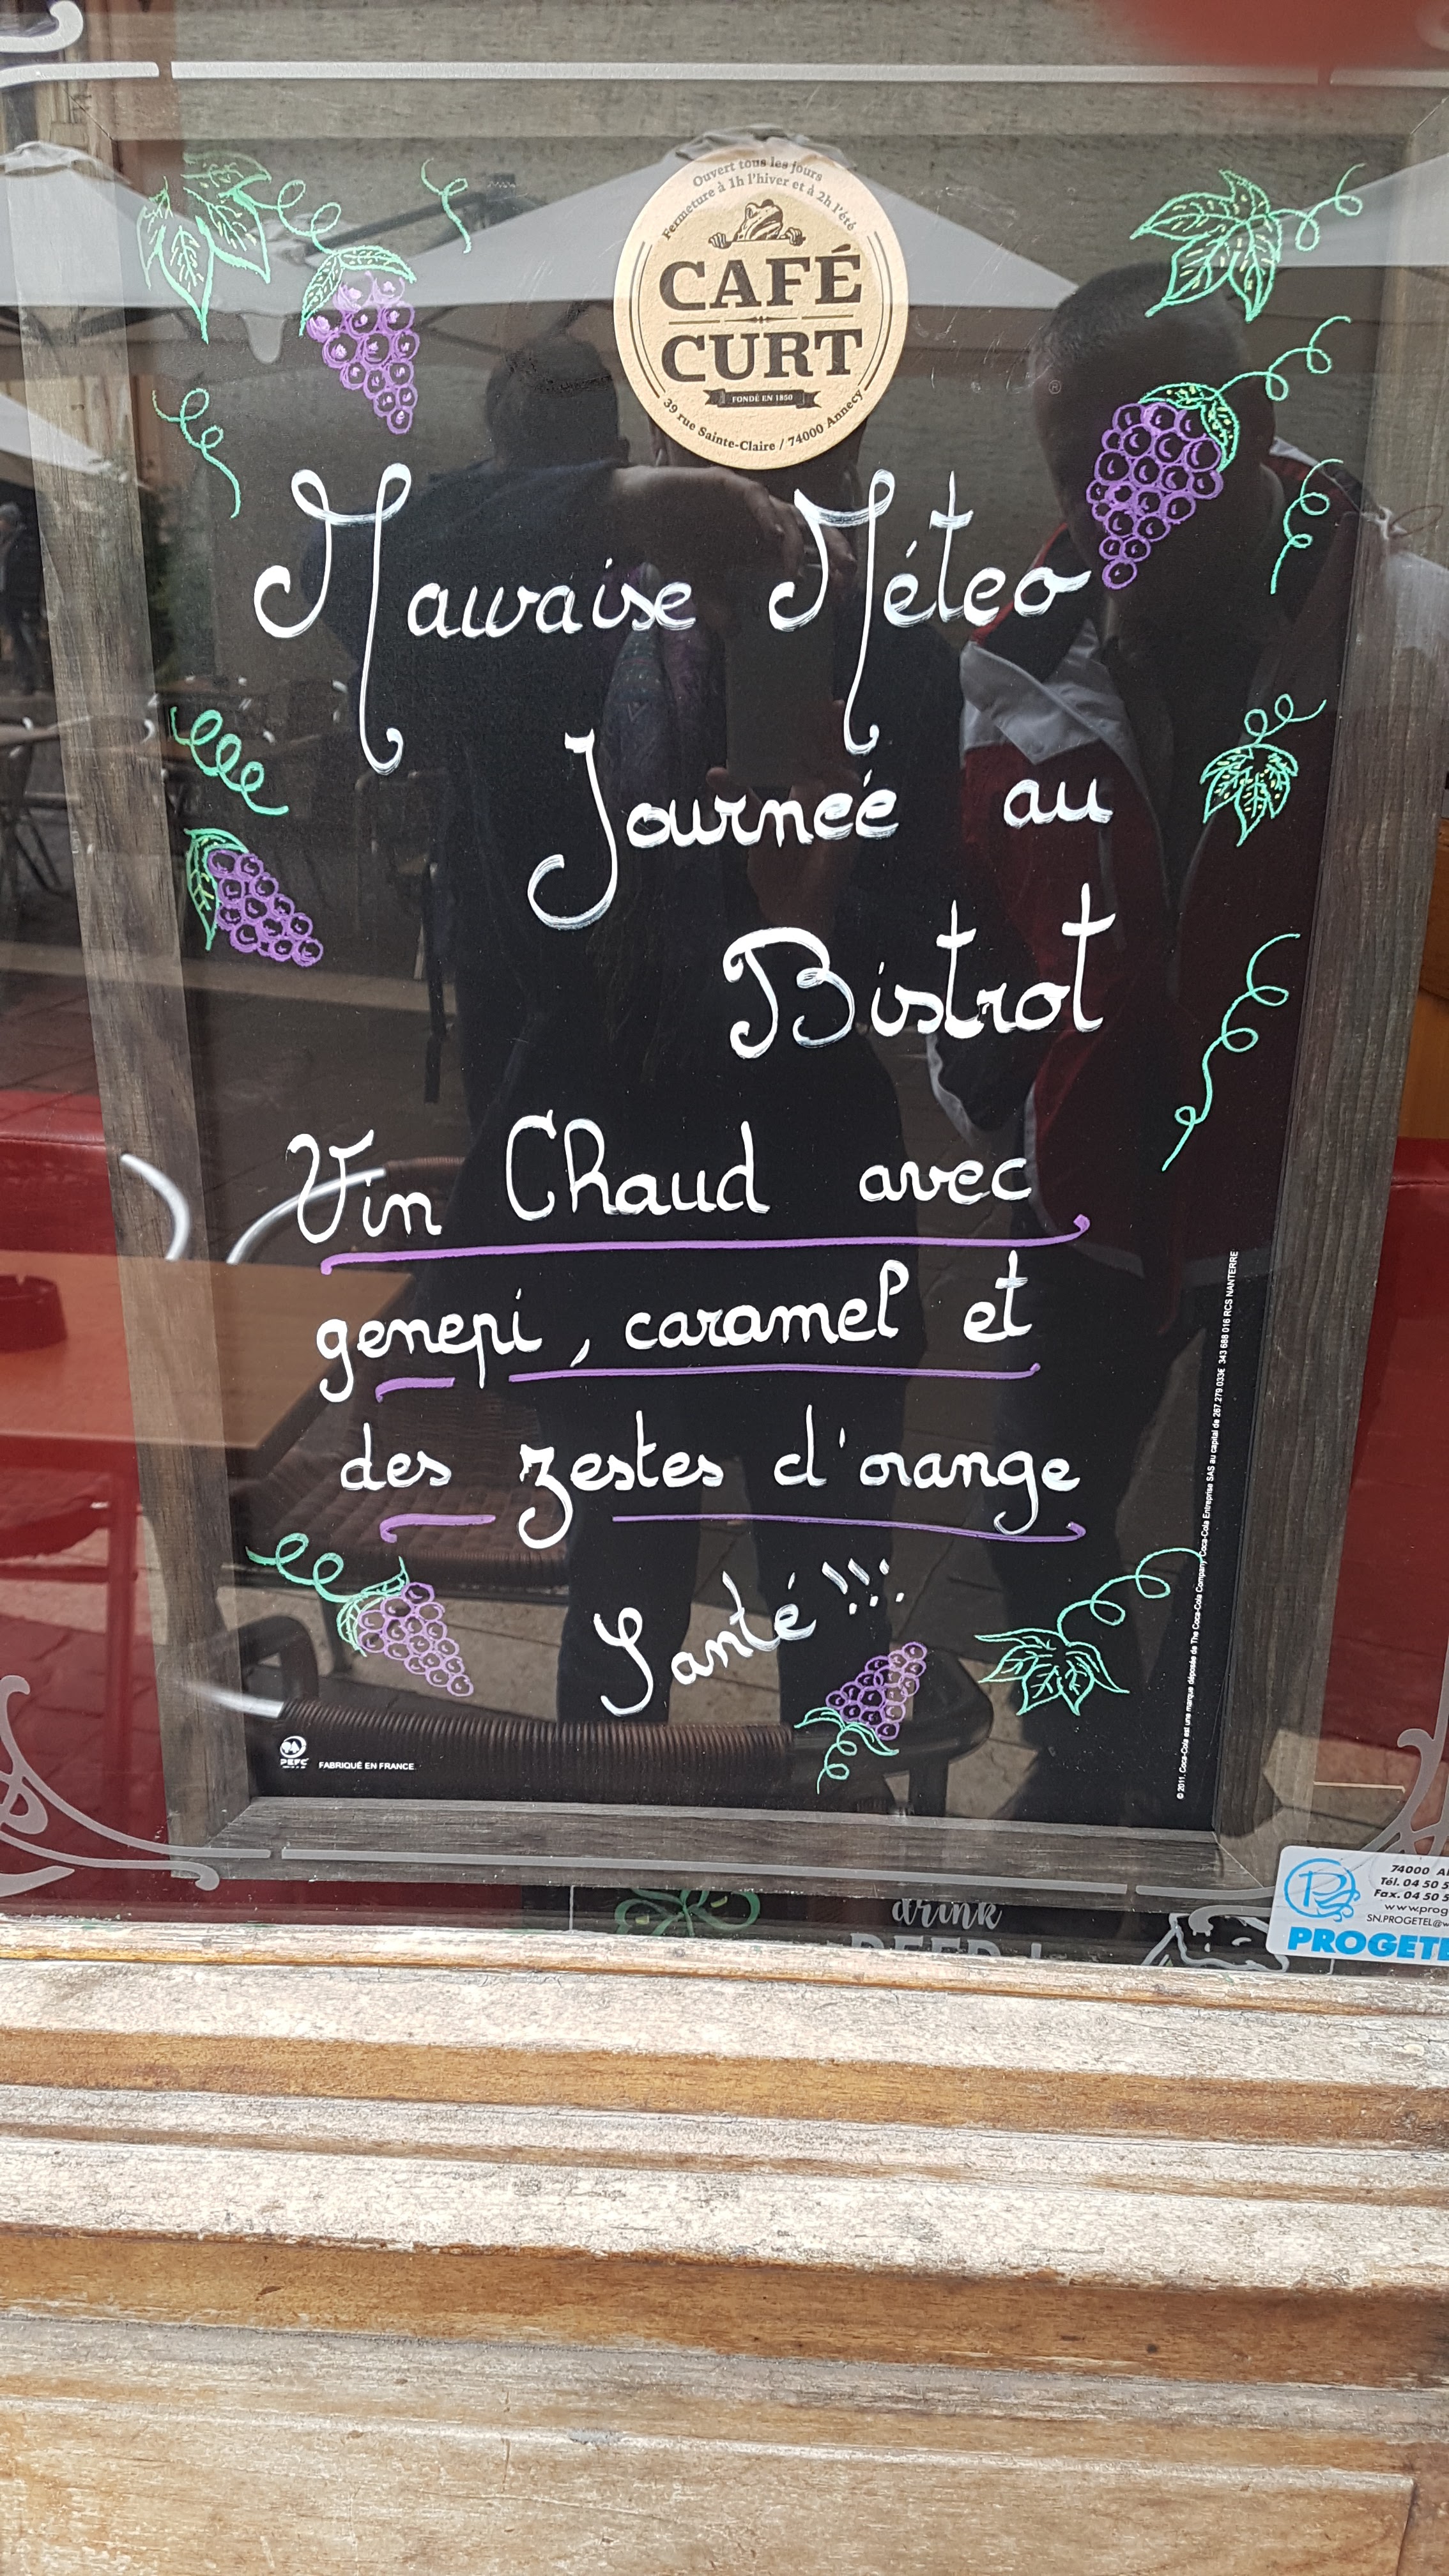 Ouvert tous les jours
Fermeture à 1h l'hiver et à 2h l'été
CAFÉ
CURT
FONDÉ EN 1850
39 rue Sainte-Claire / 74000 Annecy
®
Mauvaise Méteo
Journeé au
Bistrot
Vin Chaud avec
genepi, caramel et
des zestes d'orange
Santé !!!
PEFC
FABRIQUÉ EN FRANCE
© 2011. Coca-Cola est une marque déposée de The Coca-Cola Company. Coca-Cola Entreprise SAS au capital de 267.279.033€ 343 688 016 RCS NANTERRE
drink
BEER !
74000
Tél. 04 50 5
Fax. 04 50 5
www.prog
SN.PROGETEL@w
PROGETE